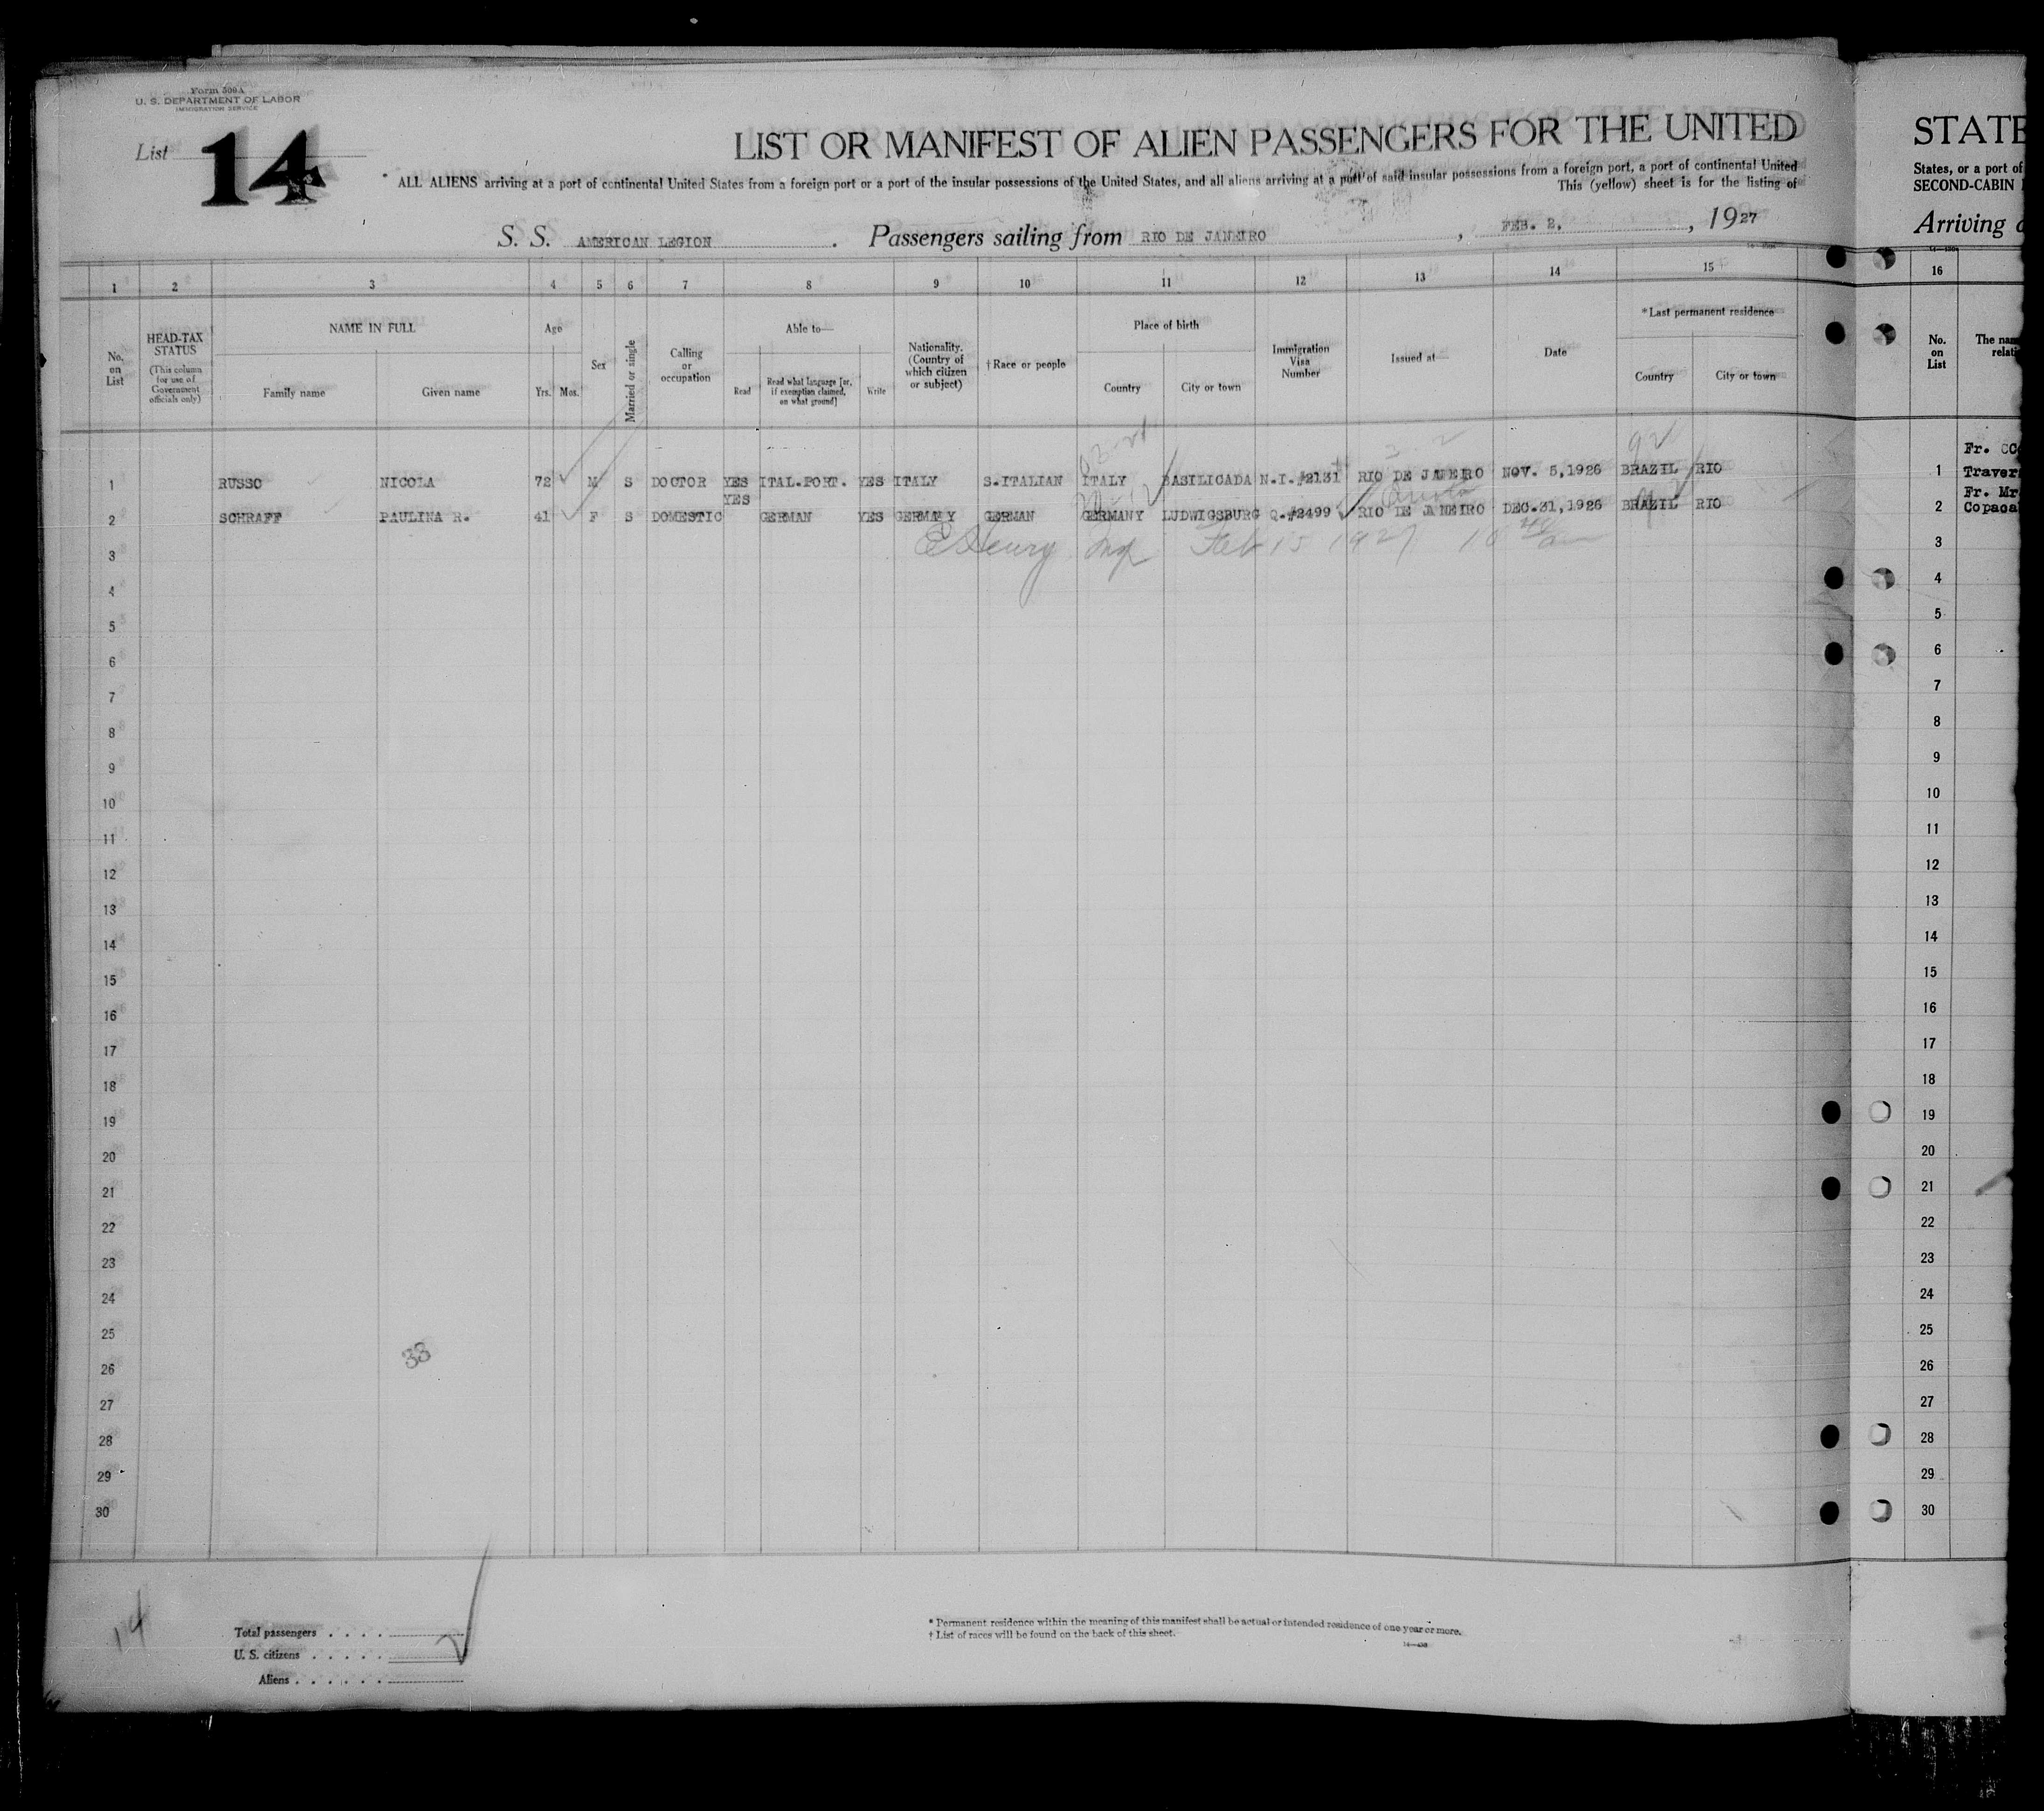 Form 500A
U. S. DEPARTMENT OF LABOR
IMMIGRATION SERVICE
List 14
LIST OR MANIFEST OF ALIEN PASSENGERS FOR THE UNITED
* ALL ALIENS arriving at a port of continental United States from a foreign port or a port of the insular possessions of the United States, and all aliens arriving at a port of said insular possessions from a foreign port, a port of continental United
This (yellow) sheet is for the listing of
S. S. AMERICAN LEGION . Passengers sailing from RIO DE JANEIRO , FEB. 2, , 1927
1 2 3 4 5 6 7 8 9 10 11 12 13 14 15
No. on List
HEAD-TAX STATUS
(This column for use of Government officials only)
NAME IN FULL
Family name Given name
Age
Yrs. Mos.
Sex
Married or single
Calling or occupation
Able to—
Read
Read what language [or, if exemption claimed, on what ground]
Write
Nationality. (Country of which citizen or subject)
† Race or people
Place of birth
Country City or town
Immigration Visa Number
Issued at—
Date
* Last permanent residence
Country City or town
1 RUSSO NICOLA 72 M S DOCTOR YES ITAL.PORT. YES ITALY S.ITALIAN ITALY BASILICADA N.I.#2131 RIO DE JANEIRO NOV. 5,1926 BRAZIL RIO
2 SCHRAFF PAULINA R. 41 F S DOMESTIC YES GERMAN YES GERMANY GERMAN GERMANY LUDWIGSBURG Q.#2499 RIO DE JANEIRO DEC.31,1926 BRAZIL RIO
3 Henry Insp Feb 15 1927 10
4
5
6
7
8
9
10
11
12
13
14
15
16
17
18
19
20
21
22
23
24
25
26
27
28
29
30
33
14
Total passengers . . . .
U. S. citizens . . . . .
Aliens . . . . . .
* Permanent residence within the meaning of this manifest shall be actual or intended residence of one year or more.
† List of races will be found on the back of this sheet.
STATE
States, or a port of
SECOND-CABIN
Arriving
16
No. on List
The nam
relati
Fr.
1 Traver
Fr. Mr
2 Copaca
3
4
5
6
7
8
9
10
11
12
13
14
15
16
17
18
19
20
21
22
23
24
25
26
27
28
29
30